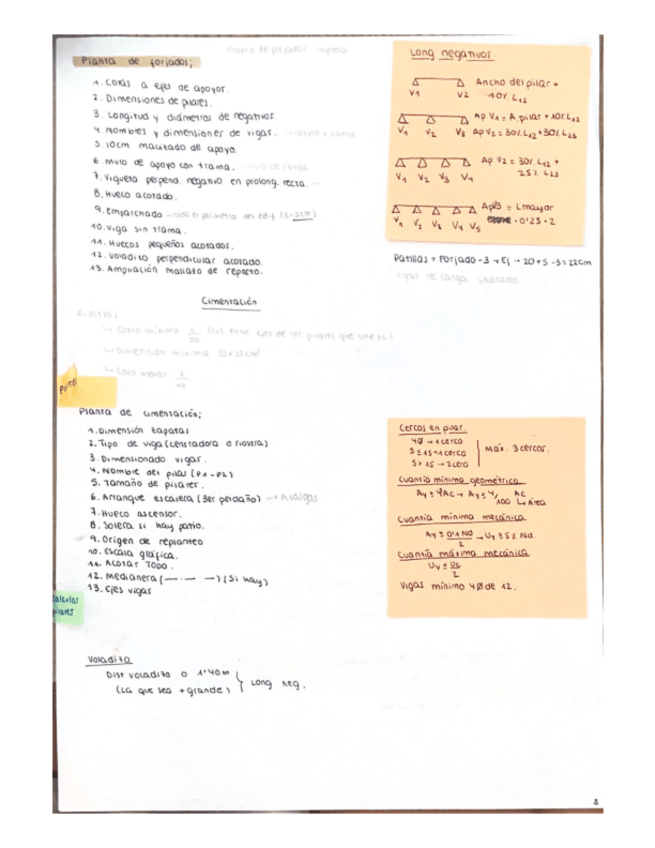 Planta de forjados impresa
Planta de forjados;
1. Cotas a ejes de apoyos.
2. Dimensiones de pilares.
3. Longitud y diámetros de negativos.
4. Nombres y dimensiones de vigas. → centro + cama
5. 10cm macizado de apoyo.
6. Muro de apoyo con trama. → muro de carga
7. Vigueta perpend. negativo en prolong. recta.
8. Hueco acotado.
9. Emparchado → todo el perímetro del edif (2-5cm)
10. Viga sin trama.
11. Huecos pequeños acotados.
12. Voladito perpendicular acotado.
13. Ampliación mallazo de reparto.
Long negativos.
V1 V2 Ancho del pilar + 10% L12
V1 V2 V3 Ap V1 = A. pilar + 10% L12
Ap V2 = 30% L12 + 30% L23
V1 V2 V3 V4 Ap V2 = 30% L12 + 25% L23
V1 V2 V3 V4 V5 Ap V3 = L mayor · 0'25 · 2
Patillas = Forjado - 3 → Ej → 20 + 5 - 3 = 22cm
vigas de carga
Cimentación
Riostras
↳ Canto mínimo L/20 (luz entre ejes de los pilares que une
↳ Dimensión mínima 25x25cm²
↳ Cara menor
Planta de cimentación;
1. Dimensión zapatas
2. Tipo de viga (centradora o riostra)
3. Dimensionado vigas.
4. Nombre del pilar (P1-P2)
5. Tamaño de pilares.
6. Arranque escalera (3er peldaño)
7. Hueco ascensor.
8. Solera si hay patio.
9. Origen de replanteo
10. Escala gráfica.
11. Acotar TODO.
12. Medianera (— · — · —) (Si hay)
13. Ejes vigas
Cercos en pilar.
4Ø → 1 cerco
S ≤ 15 → 1 cerco
S > 15 → 2 cerco
Máx. 3 cercos.
Cuantía mínima geométrica
Ay ≥ 4AC → Ay ≥ 4/100 AC
↳ Área
Cuantía mínima mecánica
Ay ≥ 0'1 Nd/2 → Uy ≥ 5% Nd.
Cuantía máxima mecánica
Uy ≤ Us/2
Vigas mínimo 4Ø de 12.
Cálculos pilares
Voladito
Dist voladito o 1'40m
(La que sea + grande) } Long neg.